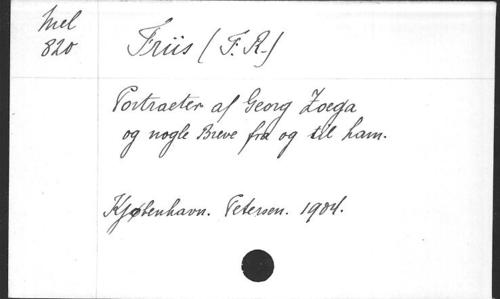 Mel
820
Friis (F. R.)
Portraeter af Georg Zoega
og nogle Breve fra og til ham.
Kjøbenhavn. Petersen. 1904.